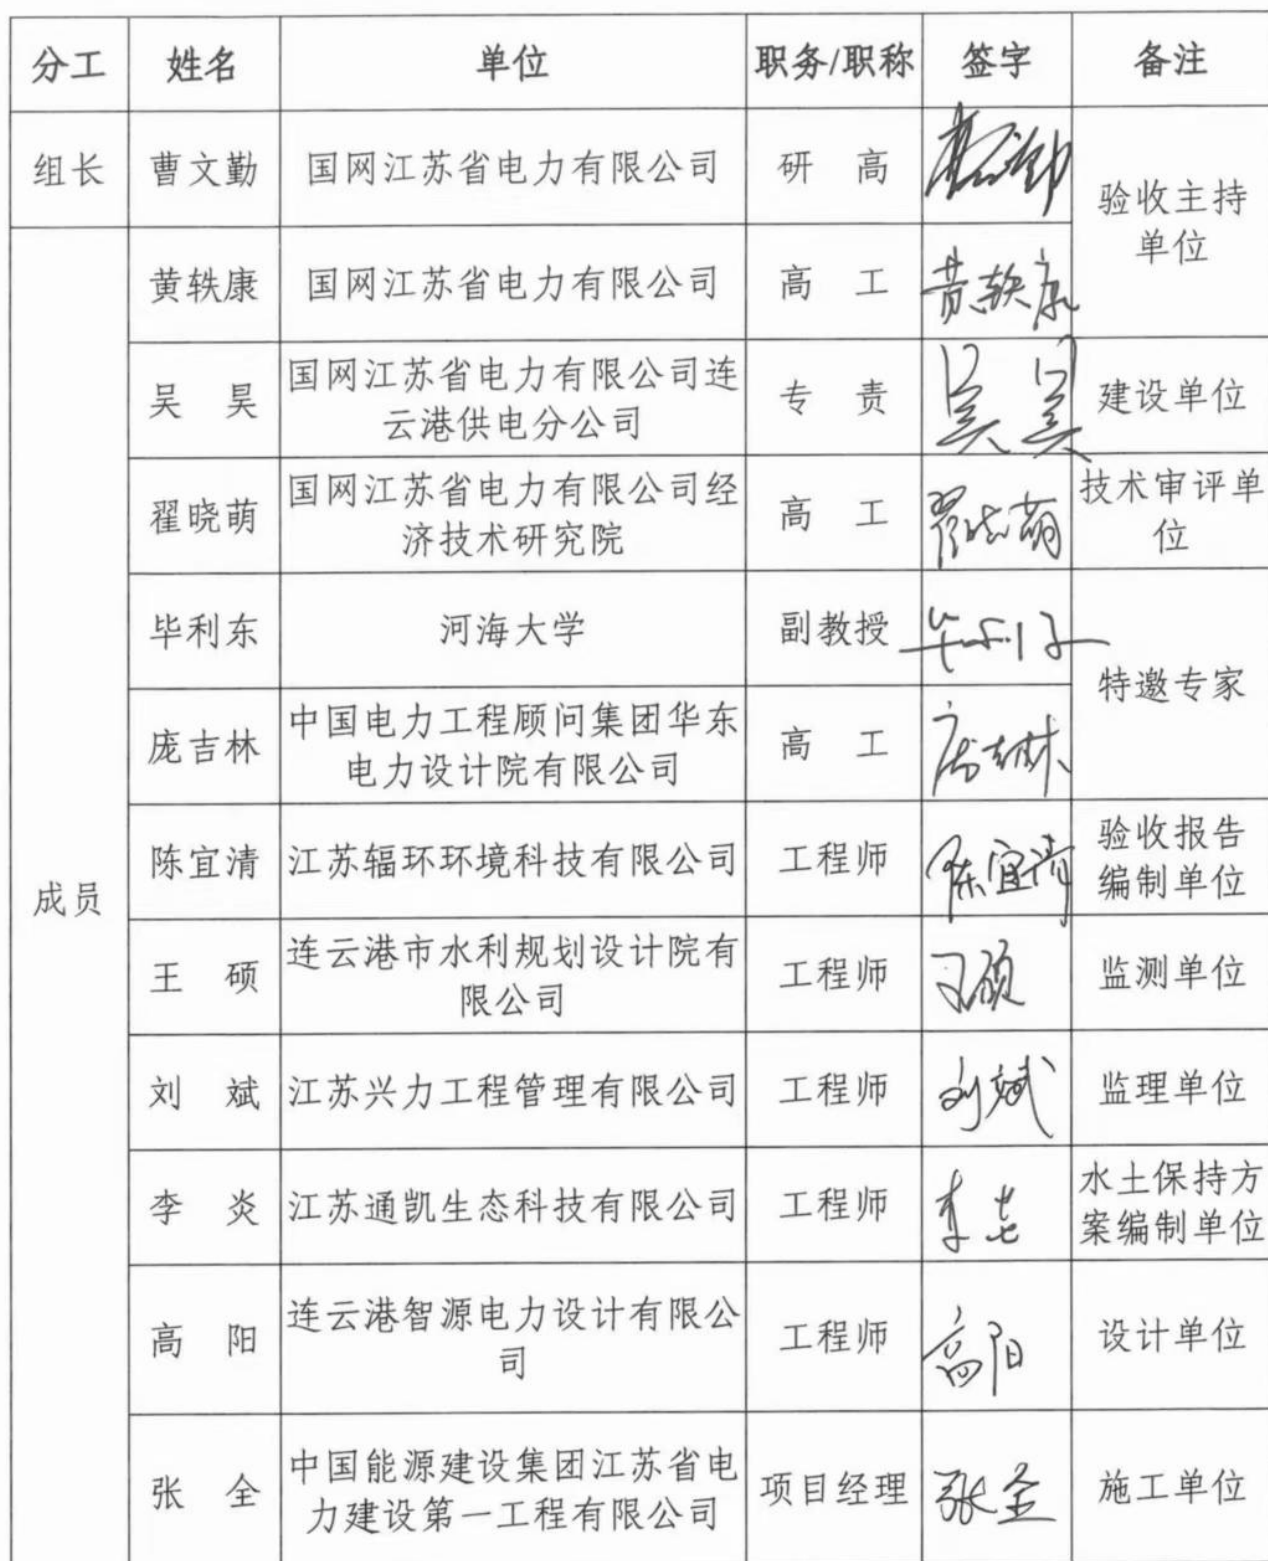 分工 姓名 单位 职务/职称 签字 备注
组长 曹文勤 国网江苏省电力有限公司 研 高 曹文勤 验收主持
单位
成员 黄轶康 国网江苏省电力有限公司 高 工 黄轶康
吴 昊 国网江苏省电力有限公司连
云港供电分公司 专 责 吴昊 建设单位
翟晓萌 国网江苏省电力有限公司经
济技术研究院 高 工 翟晓萌 技术审评单
位
毕利东 河海大学 副教授 毕利东 特邀专家
庞吉林 中国电力工程顾问集团华东
电力设计院有限公司 高 工 庞吉林
陈宜清 江苏辐环环境科技有限公司 工程师 陈宜清 验收报告
编制单位
王 硕 连云港市水利规划设计院有
限公司 工程师 王硕 监测单位
刘 斌 江苏兴力工程管理有限公司 工程师 刘斌 监理单位
李 炎 江苏通凯生态科技有限公司 工程师 李炎 水土保持方
案编制单位
高 阳 连云港智源电力设计有限公
司 工程师 高阳 设计单位
张 全 中国能源建设集团江苏省电
力建设第一工程有限公司 项目经理 张全 施工单位